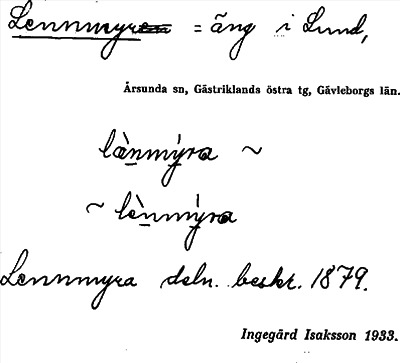 Lennmyran = äng i Lund,
Årsunda sn, Gästriklands östra tg, Gävleborgs län.
lằnmy̆ra ~
~ lènmýra
Lennmyra deln. beskr. 1879.
Ingegärd Isaksson 1933.